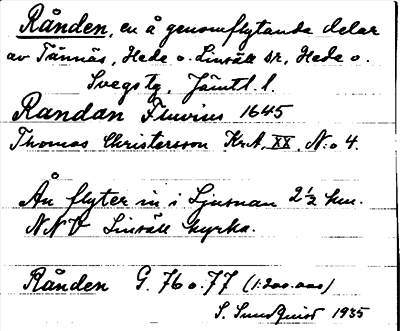 Rånden, en å genomflytande delar
av Tännäs, Hede o. Linsäll sr, Hede o.
Svegs tg, Jämtl. l.
Randan Fluvius 1645
Thomas Christersson Kr.A. XX, N:o 4.
Ån flyter in i Ljusnan 2½ km.
NNV Linsäll kyrka.
Rånden G. 76 o. 77 (1:200.000)
S. Sundquist 1935